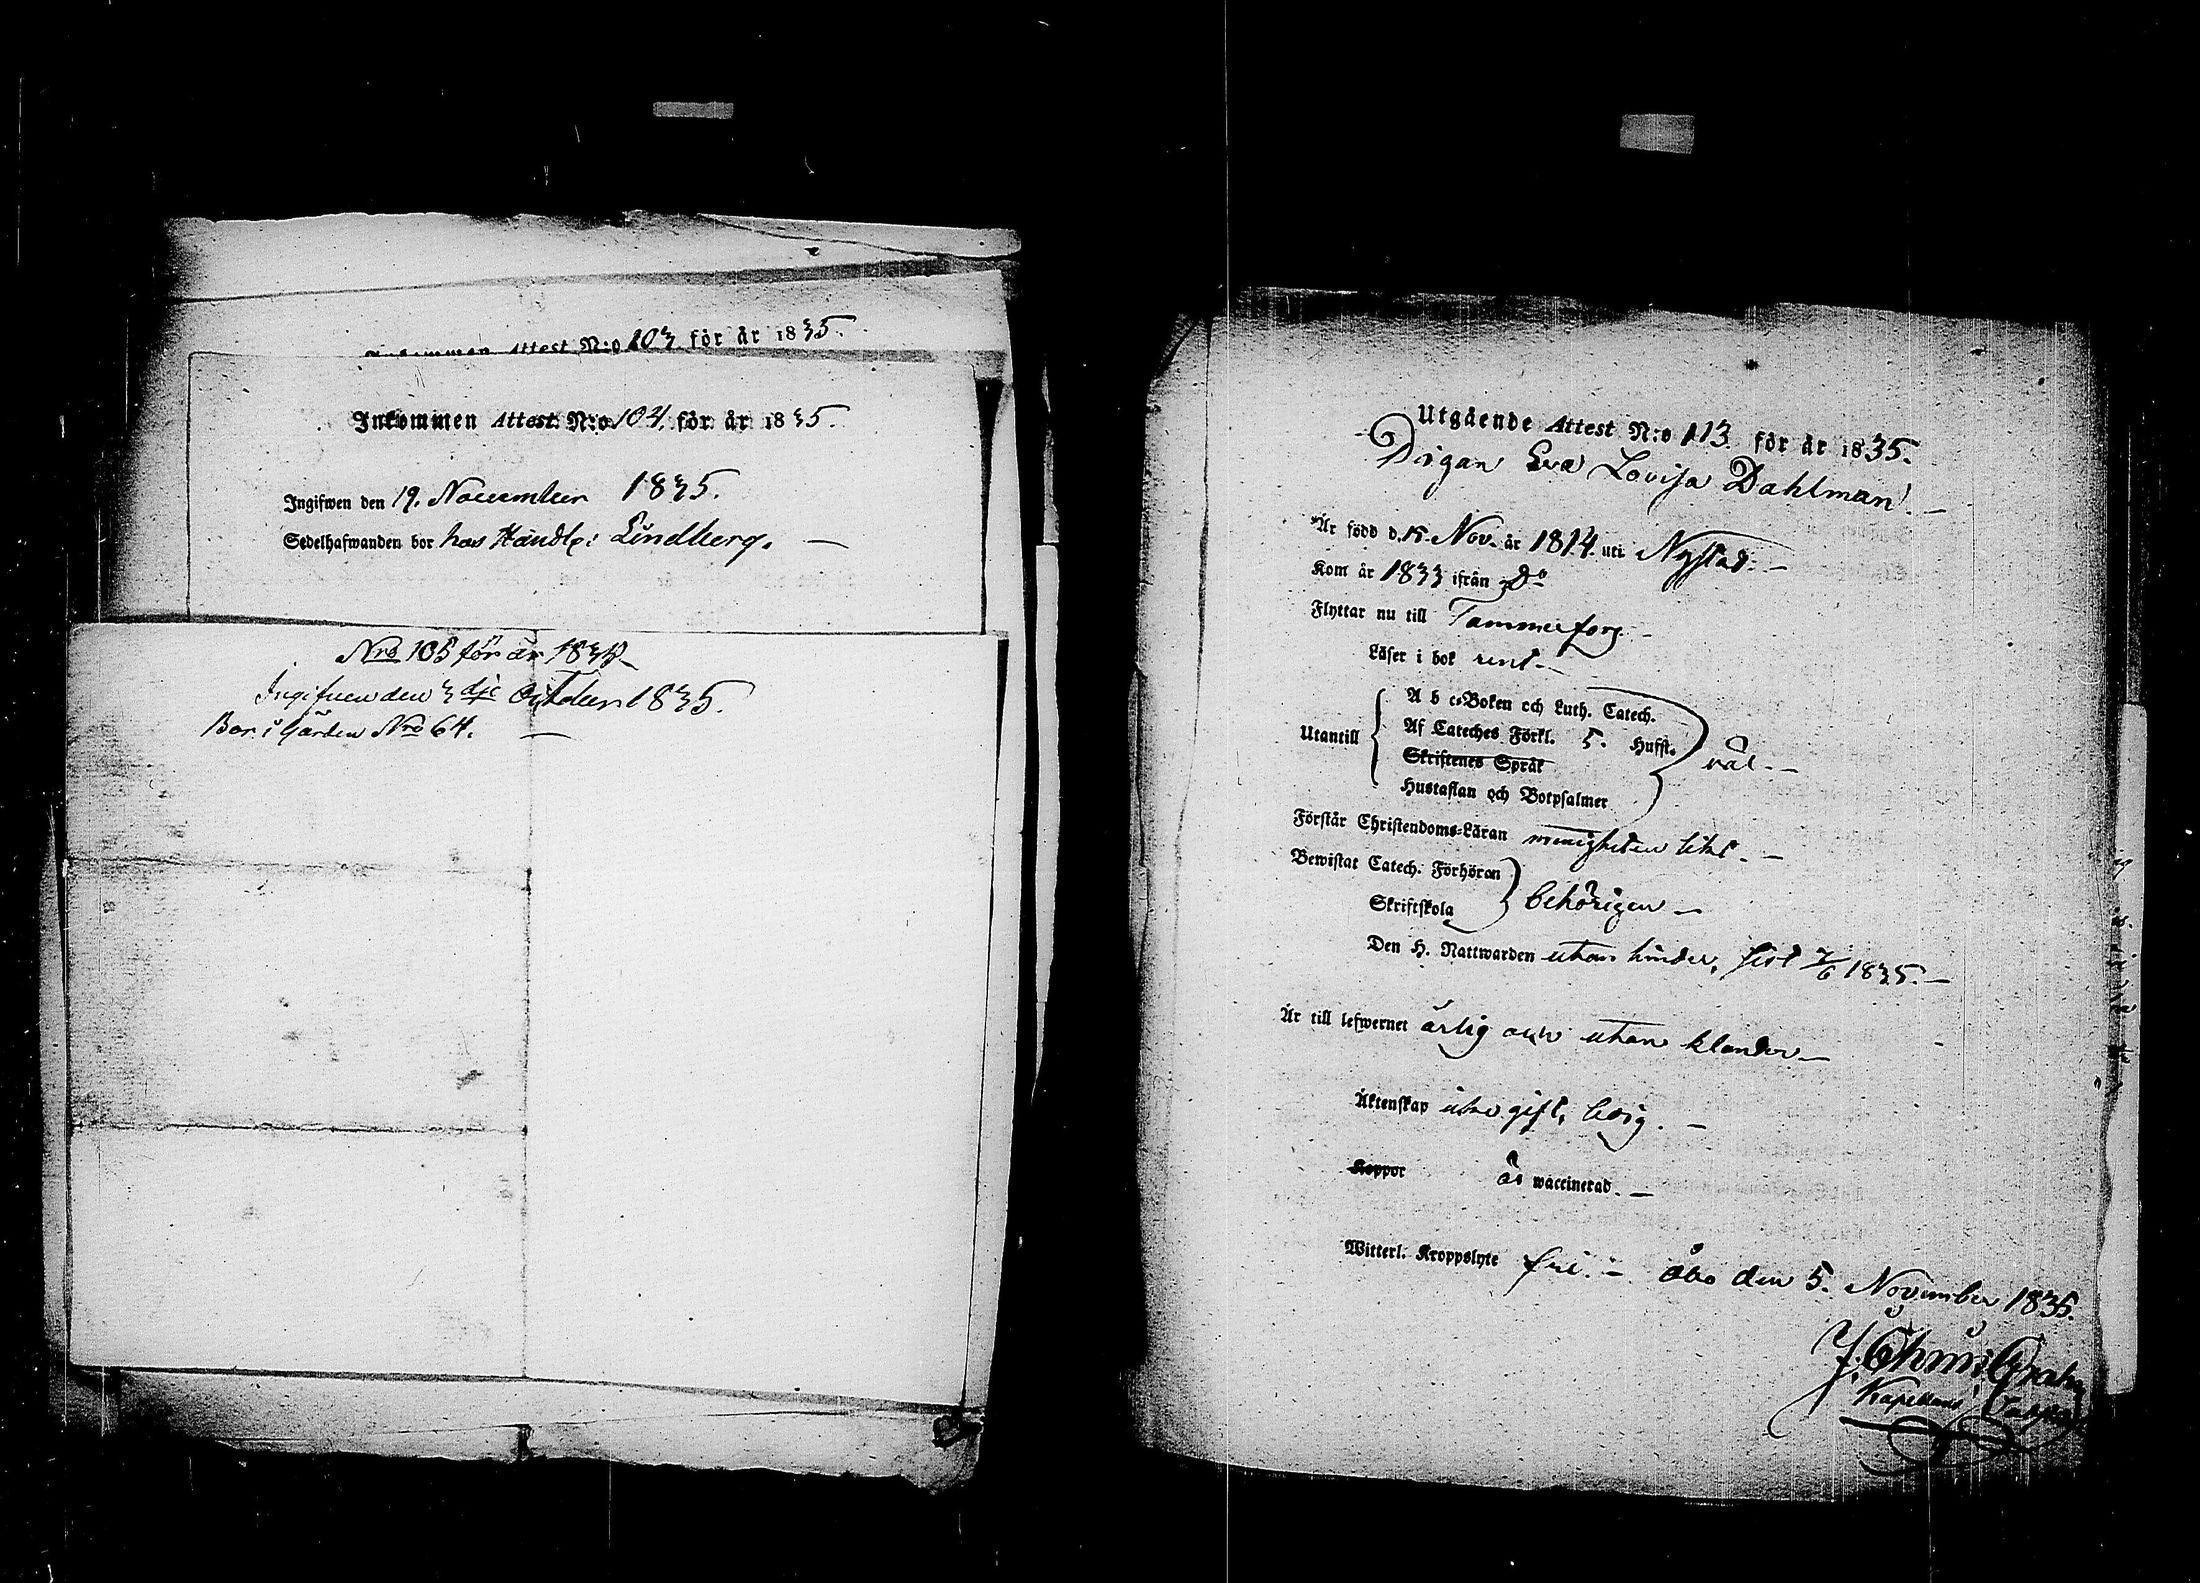 Inkommen Attest N:o 103 för år 1835.
Inkommen Attest N:o 104. för år 1835.
Ingifwen den 19. November 1835.
Sedelhafwanden bor hos Handl: Lindberg. —
Nro 105 för år 1835
Ingifven den 3dje October 1835.
Bor i Gården Nro 64. —
Utgående Attest N:o 113 för år 1835.
Pigan Eva Lovisa Dahlman. —
Är född d. 15. Nov. år 1814 uti Nystad. —
Kom år 1833 ifrån Do
Flyttar nu till Tammerfors. —
Läser i bok rent. —
A b c-Boken och Luth. Catech.
Utantill Af Cateches Förkl. 5. Hufst. väl. —
Skriftenes Språk
Hustaflan och Botpsalmer
Förstår Christendoms-Läran menigheten likt. —
Bewistat Catech. Förhören
Skriftskola behörigen —
Den H. Nattwarden utan hinder, sist 7/6 1835. —
Är till lefwernet ärlig och utan klander —
Äktenskap icke gift, ledig. —
Koppor är waccinerad. —
Witterl. Kroppslyte fri. — Åbo den 5. November 1835.
Kapellans